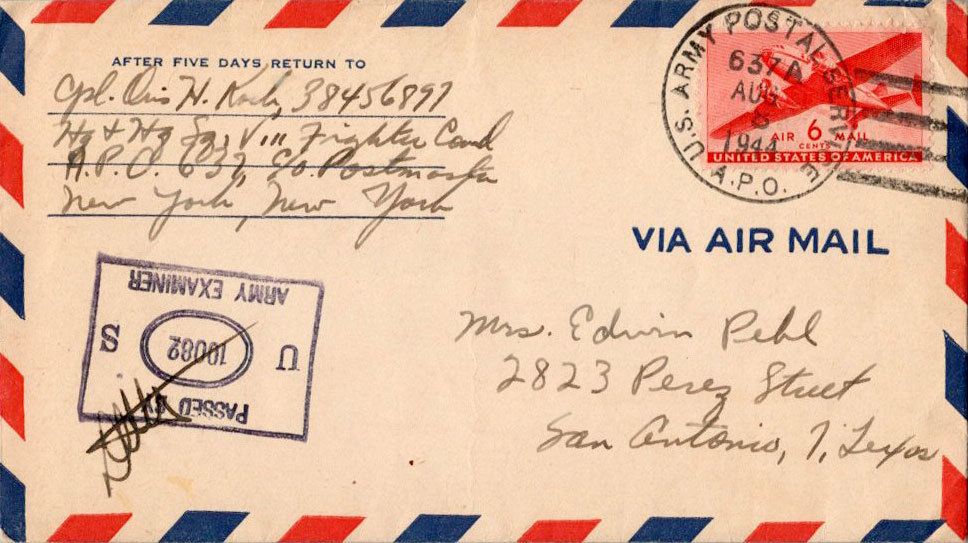 AFTER FIVE DAYS RETURN TO
Cpl. H. Koch, 38456897
Hq & Hq Sq, VIII Fighter Comd
A.P.O. 637, c/o Postmaster
New York, New York
U.S. ARMY POSTAL SERVICE
637A
AUG
8
1944
A.P.O.
AIR 6 MAIL
CENTS
UNITED STATES OF AMERICA
VIA AIR MAIL
PASSED BY
U S
10082
ARMY EXAMINER
Mrs. Edwin Pehl
2823 Perez Street
San Antonio, 7, Texas